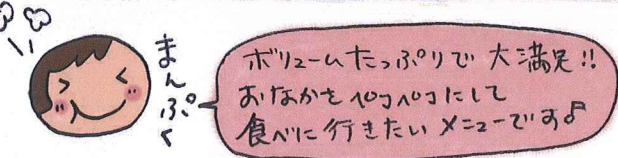 まんぷく
ボリュームたっぷりで 大満足!!
おなかをペコペコにして
食べに行きたいメニューです♪